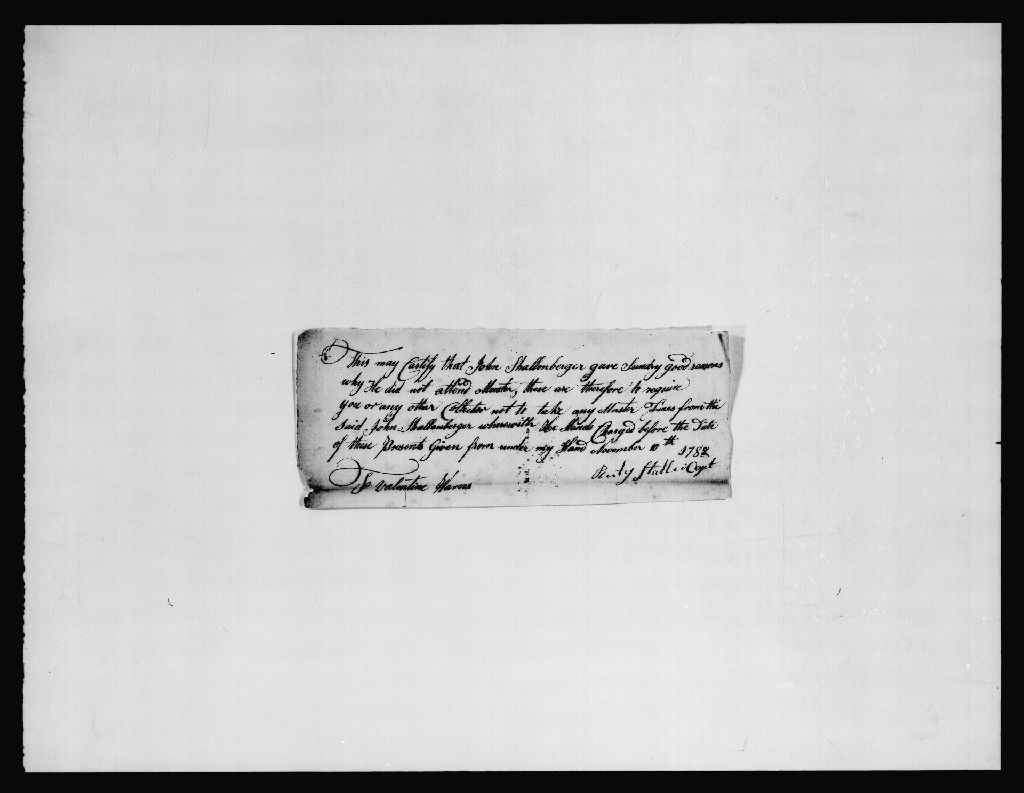 This may Certify that John Shallenberger gave Sundry good reasons
why He did not attend Muster, these are therefore to require
you or any other Collector not to take any Muster Fines from the
Said John Shallenberger wherewith He Stands Charged before the Date
of these Presents Given from under my Hand November 11th 1782
To Valentine
Capt